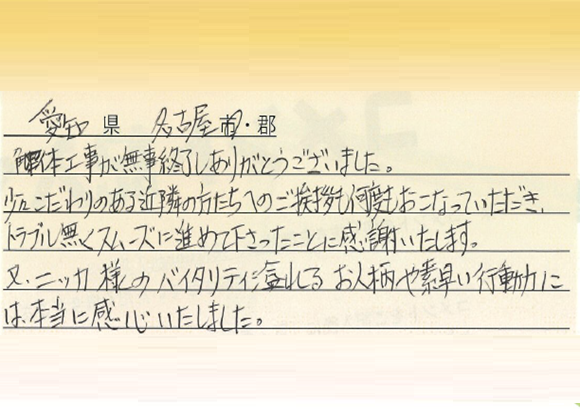 愛知県 名古屋市・郡
解体工事が無事終了しありがとうございました。
少々こだわりのある近隣の方たちへのご挨拶も何度もおこなっていただき、
トラブル無くスムーズに進めて下さったことに感謝いたします。
又、ニッカ様のバイタリティ溢れてる お人柄や素早い行動力に
は本当に感心いたしました。